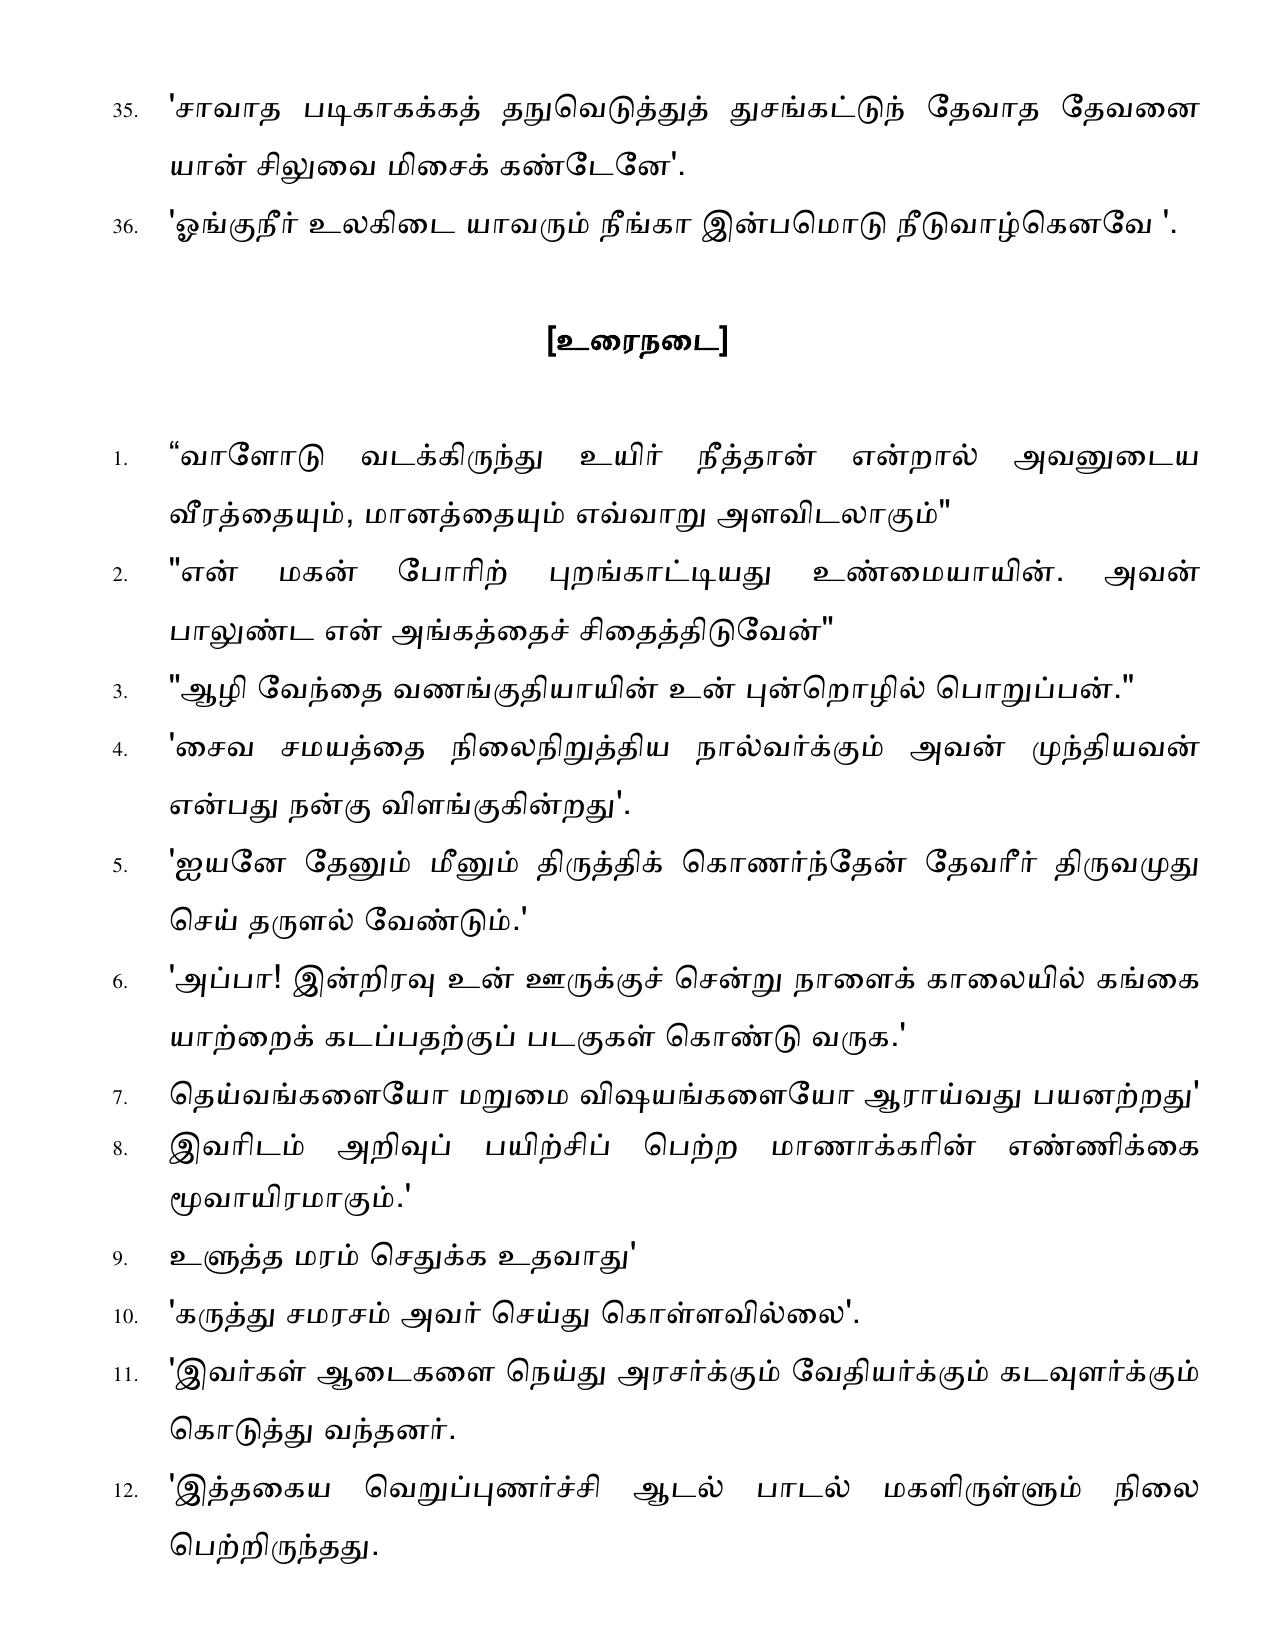 35. 'சாவாத படிகாகக்கத் தநுவெடுத்துத் துசங்கட்டுந் தேவாத தேவனை
யான் சிலுவை மிசைக் கண்டேனே'.
36. 'ஓங்குநீர் உலகிடை யாவரும் நீங்கா இன்பமொடு நீடுவாழ்கெனவே '.
[உரைநடை]
1. “வாளோடு வடக்கிருந்து உயிர் நீத்தான் என்றால் அவனுடைய
வீரத்தையும், மானத்தையும் எவ்வாறு அளவிடலாகும்"
2. "என் மகன் போரிற் புறங்காட்டியது உண்மையாயின். அவன்
பாலுண்ட என் அங்கத்தைச் சிதைத்திடுவேன்"
3. "ஆழி வேந்தை வணங்குதியாயின் உன் புன்றொழில் பொறுப்பன்."
4. 'சைவ சமயத்தை நிலைநிறுத்திய நால்வர்க்கும் அவன் முந்தியவன்
என்பது நன்கு விளங்குகின்றது'.
5. 'ஐயனே தேனும் மீனும் திருத்திக் கொணர்ந்தேன் தேவரீர் திருவமுது
செய் தருளல் வேண்டும்.'
6. 'அப்பா! இன்றிரவு உன் ஊருக்குச் சென்று நாளைக் காலையில் கங்கை
யாற்றைக் கடப்பதற்குப் படகுகள் கொண்டு வருக.'
7. தெய்வங்களையோ மறுமை விஷயங்களையோ ஆராய்வது பயனற்றது'
8. இவரிடம் அறிவுப் பயிற்சிப் பெற்ற மாணாக்கரின் எண்ணிக்கை
மூவாயிரமாகும்.'
9. உளுத்த மரம் செதுக்க உதவாது'
10. 'கருத்து சமரசம் அவர் செய்து கொள்ளவில்லை'.
11. 'இவர்கள் ஆடைகளை நெய்து அரசர்க்கும் வேதியர்க்கும் கடவுளர்க்கும்
கொடுத்து வந்தனர்.
12. 'இத்தகைய வெறுப்புணர்ச்சி ஆடல் பாடல் மகளிருள்ளும் நிலை
பெற்றிருந்தது.